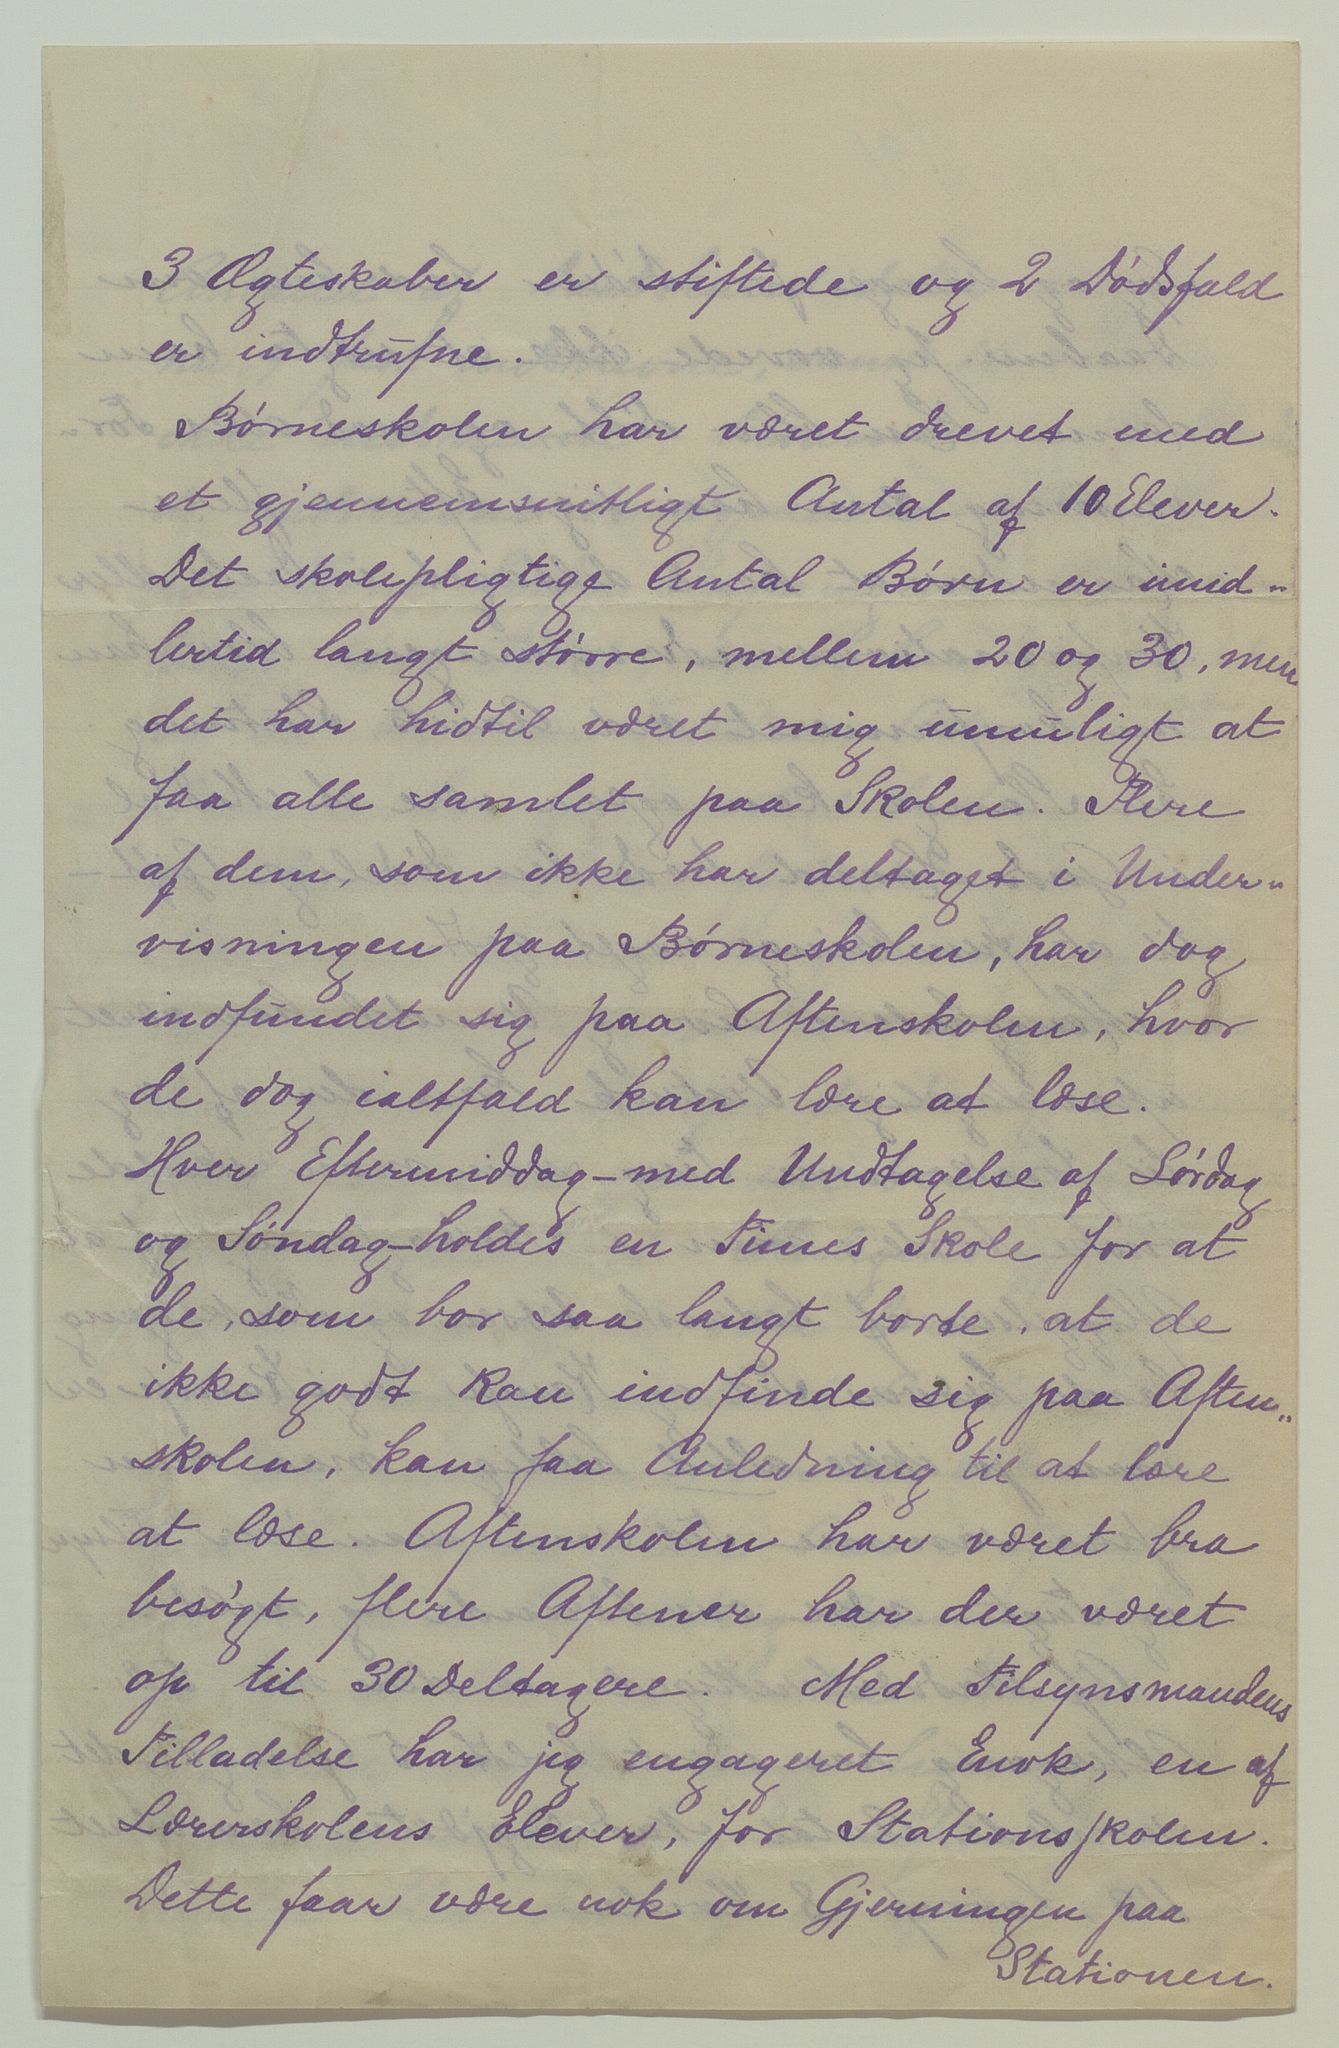 3 Ægteskaber er stiftede og 2 Dödsfald
er indtrufne.
Börneskolen har været drevet med
et gjennemsnitligt Antal af 10 Elever.
Det skolepligtige Antal Börn er imid-
lertid langt större, mellem 20 og 30, men
det har hidtil været mig umuligt at
faa alle samlet paa Skolen. Flere
af dem, som ikke har deltaget i Under-
visningen paa Börneskolen, har dog
indfundet sig paa Aftenskolen, hvor
de dog ialtfald kan lære at læse.
Hver Eftermiddag - med Undtagelse af Lördag
og Söndag - holdes en Times Skole for at
de, som bor saa langt borte, at de
ikke godt kan indfinde sig paa Aften-
skolen, kan faa Anledning til at lære
at læse. Aftenskolen har været bra
besögt, flere Aftener har der været
op til 30 Deltagere. Med Tilsynsmandens
Tilladelse har jeg engageret Enok, en af
Lærerskolens Elever, for Stationsskolen.
Dette faar være nok om Gjerningen paa
Stationen.